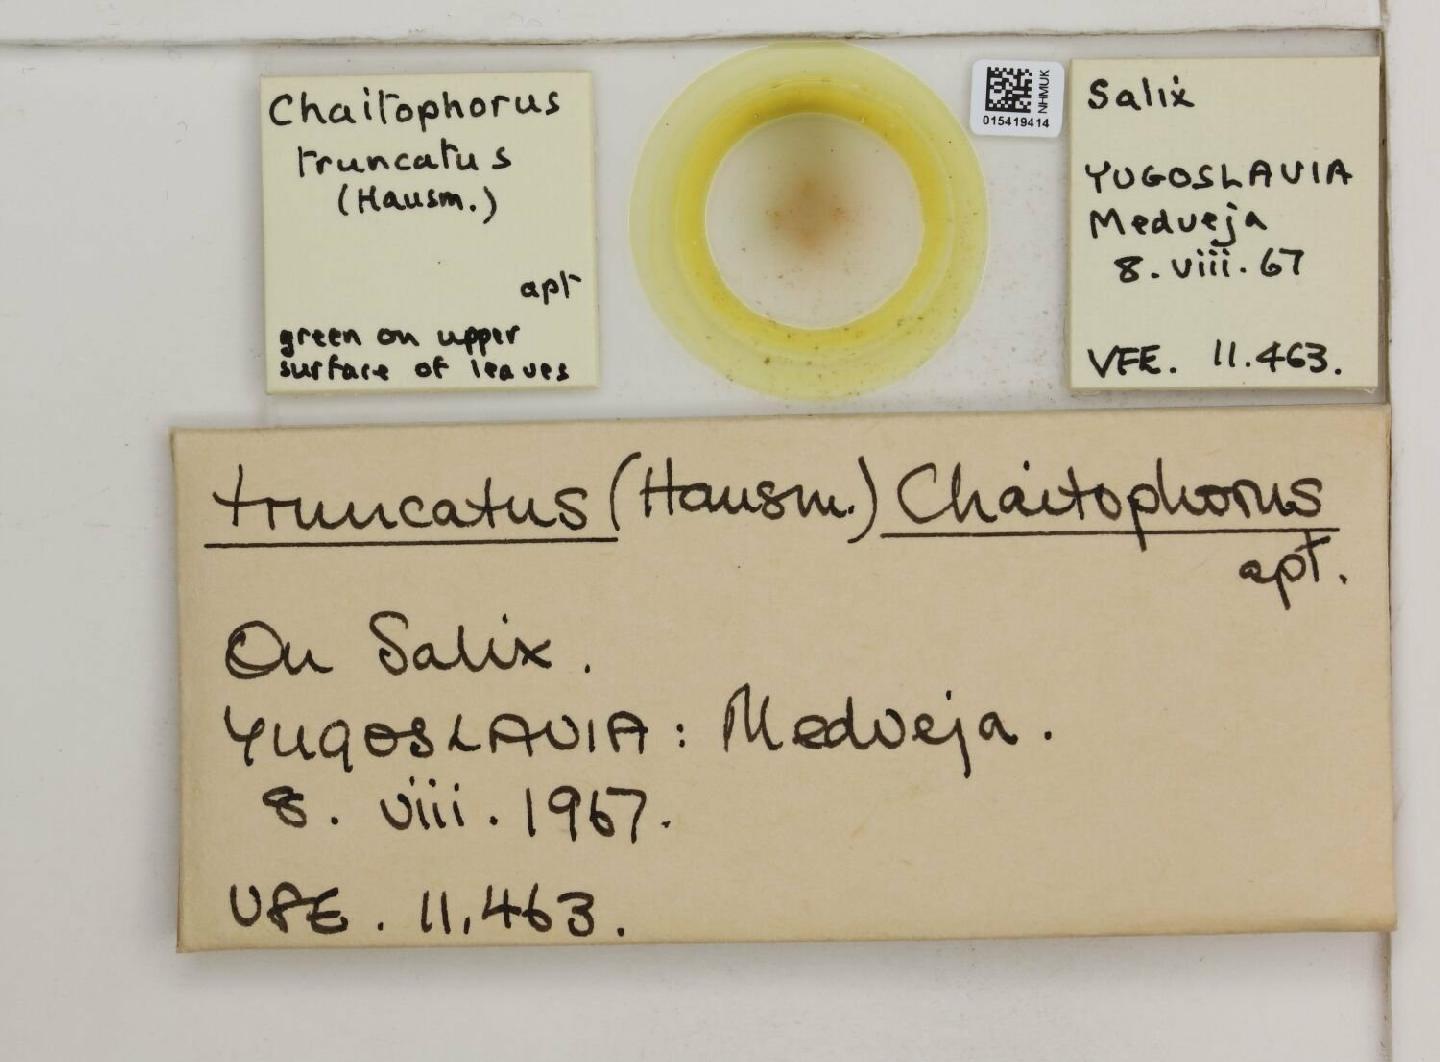 Chaitophorus
truncatus
(Hausm.)
apt
green on upper
surface of leaves
NHMUK
015419414
Salix
YUGOSLAVIA
Medveja
8.viii.67
VFE. 11.463.
truncatus (Hausm.) Chaitophorus
apt.
On Salix.
YUGOSLAVIA: Medveja.
8. viii. 1967.
VFE. 11,463.